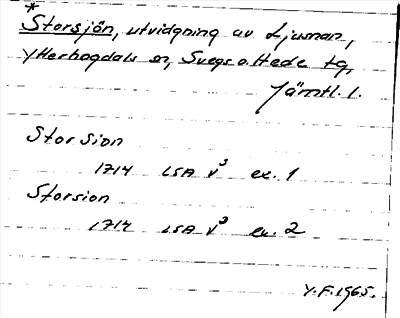 *
Storsjön, utvidgning av Ljusnan,
Ytterhogdals sn, Svegs o. Hede tg,
Jämtl. l.
Storsion
1714 LSA V³ ex. 1
Storsion
1714 LSA V³ ex. 2
Y.F. 1965.